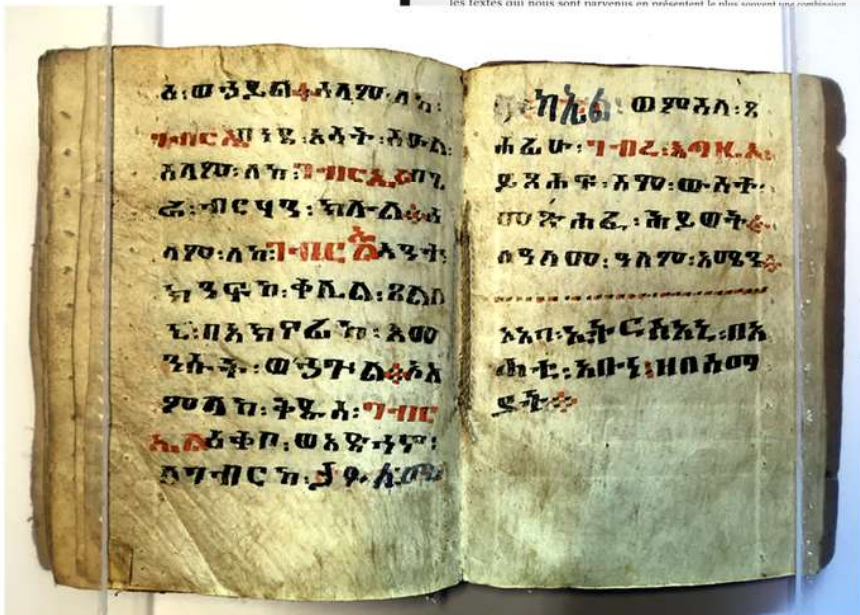 les textes qui nous sont parvenus en présentent le plus souvent une combinaison
ል፡ወኃይል፨ሰላም፡ለከ፡
በነደ፡እሳት፡
ሰላም፡ለከ፡ገብርኤልበጊ
ብርሃን፡ክሉል፨ሰ
ላም፡ለከ፡ገብርኤልእንተ፡
ክንፍከ፡ቀሊል፡ጸልለ
ኒ፡በአክናፊከ፡እመ
ንሱት፡ወኃጕል፨ኦአ
ምላከ፡ቅዱስ፡ገብር
ኤልዕቀቦ፡ወአድኅኖ፡
ለገብርከ፡
ካኤል፡ወምስለ፡ጸ
ሐፊሁ፡ገብረ፡እግዚእ፡
ይጸሐፍ፡ስሞ፡ውስተ፡
መጽሐፈ፡ሕይወት፨
ለዓለመ፡ዓለም፡አሜን፨
ኦአባ፡ኢትርስአኒ፡በአ
ሐቲ፡አቡነ፡ዘበሰማ
ያት፨